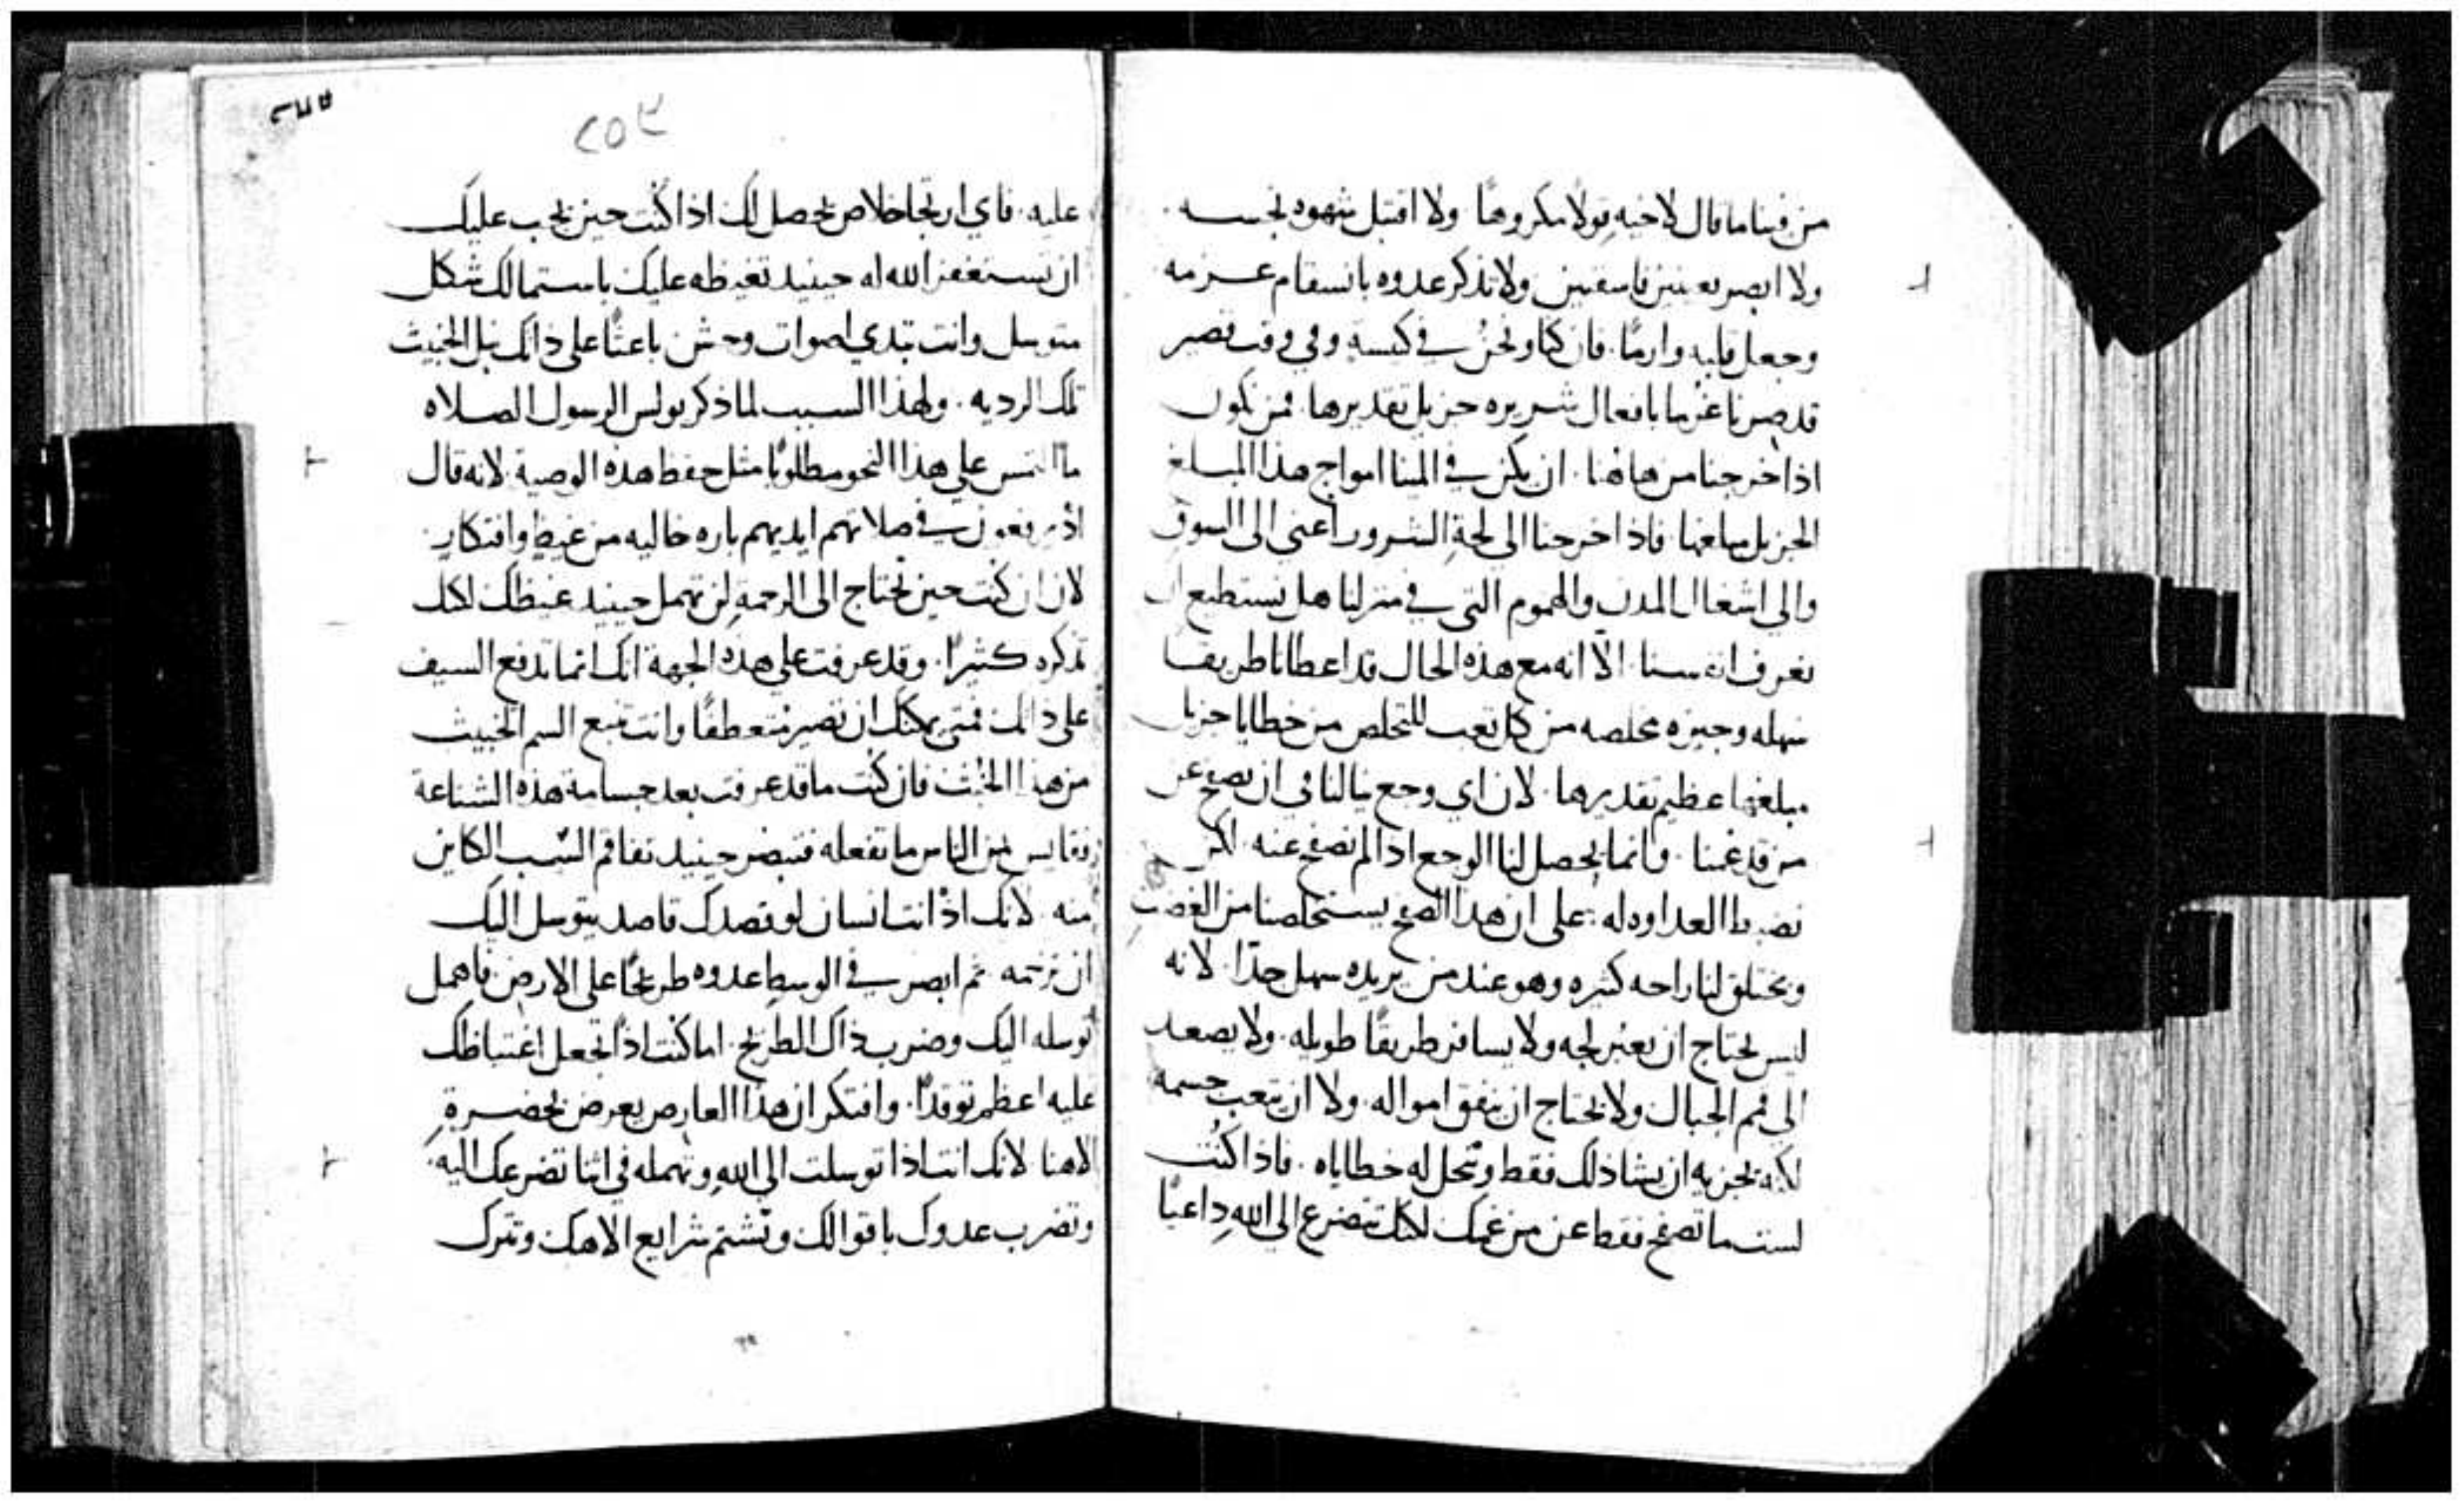 من فينا ما قال لاخيه قولا مكروها ولا اقتبل شهوه نجسه
ولا ابصر بعينين فاسقتين ولا تذكر عدوه بانسقام عزمه
وجعل قلبه وارمًا. فان كنا ونحن في كنيسة وفي وقت قصير
قد صرنا غرما بافعال شريره جزيل تقديرها. فمن نكون
اذا خرجنا من هاهنا. ان يكن في المينا امواج هذا المبلغ
الجزيل مبلغها فاذا خرجنا الى لجة الشرور اعني الى السوق
والى اشغال المدن والهموم التي في منزلنا هل نستطيع ان
نعرف انفسنا. الّا انه مع هذه الحال قد اعطانا طريقا
سهله وجيزه مخلصه من كل تعب للتخلص من خطايا جزيل
مبلغها عظيم تقديرها. لان اي وجع ينالنا في ان نصفح عن
من قد غمنا. وانما يحصل لنا الوجع اذا لم نصفح عنه لكن
نضبط العداوه له: على ان هذا الصفح يستخلصنا من الغضب
ويختلق لنا راحه كثيره وهو عند من يريده سهل جدًا. لانه
ليس يحتاج ان يعبر لجه ولا يسافر طريقًا طويله. ولا يصعد
الى قمم الجبال ولا يحتاج ان ينفق امواله. ولا ان يتعب جسمه
لكنه يجزيه ان يشا ذلك فقط وتحل له خطاياه. فاذا كنت
لست ما تصفح فقط عن من غمك لكنك تتضرع الى الله داعيًا
٢٥٣
عليه. فاي ارتجا خلاص يحصل لك اذا كنت حين يجب عليك
ان تستغفر الله له حينيد تغيظه عليك باستمالك شكل
متوسل وانت تبدي اصوات وحش باعثًا على ذاك نبل الخبيث
تلك الرديه. ولهذا السبب لما ذكر بولس الرسول الصلاه
ما التمس على هذا النحو مطلوبًا مثل حفظ هذه الوصية لانه قال
اذ يرفعون في صلاتهم ايديهم باره خاليه من غيظ وافتكار.
لان ان كنت حين تحتاج الى الرحمه لن تهمل حينيد غيظك لكنك
تذكره كثيرًا. وقد عرفت على هذه الجهة انك انما تدفع السيف
على ذاتك فمتى يمكنك ان تصير متعطفًا وانت تنبع السم الخبيث
من هذا الخبث فان كنت ما قد عرفت بعد جسامة هذه الشناعة
فقايس من الناس ما تفعله فتبصر حينيد تفاقم السّب الكاين
منه لانك اذ انت انسان لو قصدك قاصد يتوسل اليك
ان ترحمه ثم ابصر في الوسط عدوه طريحًا على الارض فاهمل
توسله اليك وضرب ذاك الطريح. اما كنت اذًا تجعل اغتياظك
عليه اعظم توقدًا. وافتكر ان هذا العارض يعرض بحضرة
الاهنا لانك انت اذا توسلت الى الله وتهمله في اثنا تضرعك اليه.
وتضرب عدوك باقوالك وتشتم شرايع الاهك وتترك